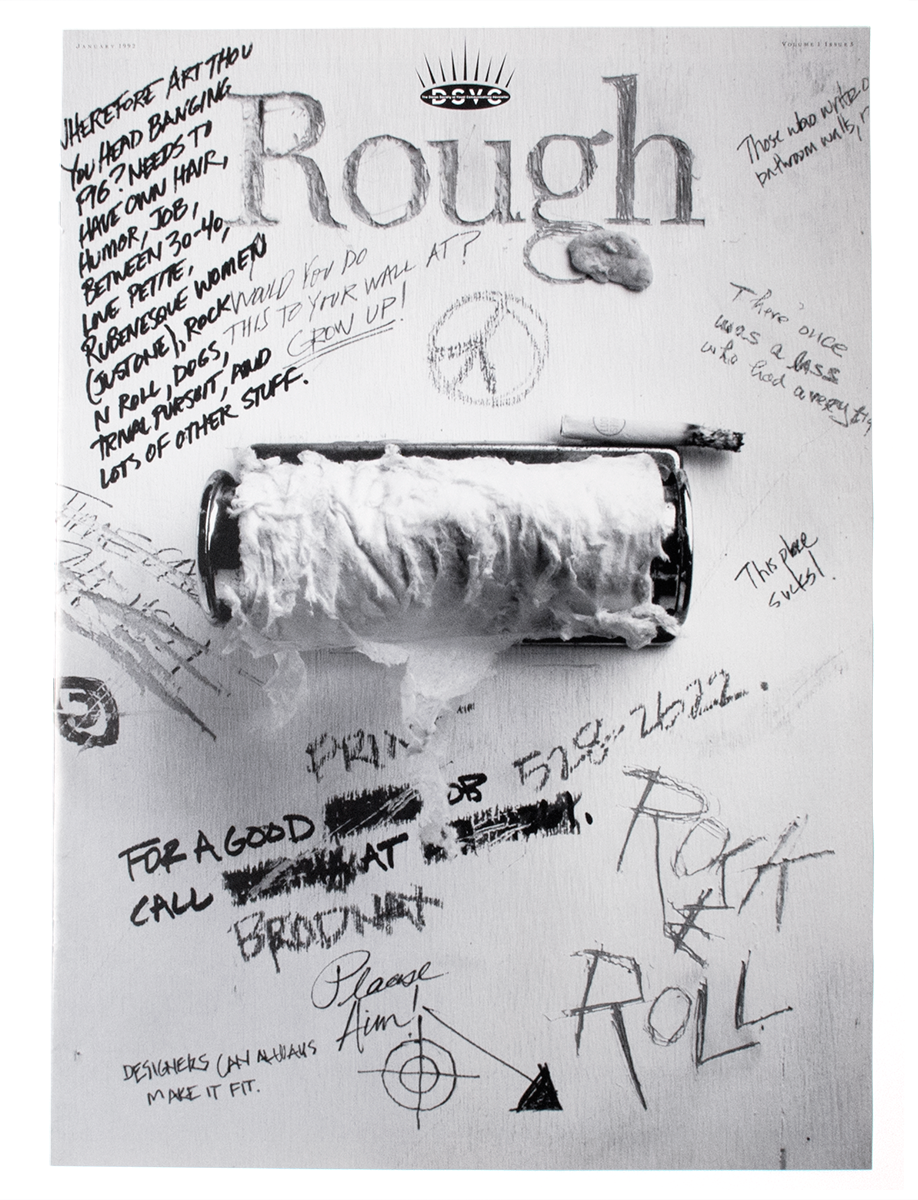 JANUARY 1992
VOLUME 1 ISSUE 5
DSVC
Rough
WHEREFORE ART THOU
YOU HEAD BANGING
PIG? NEEDS TO
HAVE OWN HAIR,
HUMOR, JOB,
BETWEEN 30-40,
LOVE PETITE,
RUBENESQUE WOMEN
(JUST ONE), ROCK
N ROLL, DOGS,
TRIVIAL PURSUIT, AND
LOTS OF OTHER STUFF.
WOULD YOU DO
THIS TO YOUR WALL AT?
GROW UP!
Those who write o
bathroom walls,
There once
was a lass
who had a very
This place
sucks!
5
PRIN
518-2622.
FOR A GOOD OB
CALL AT
BRODNAX
ROCK
&
ROLL
Please
Aim!
DESIGNERS CAN ALWAYS
MAKE IT FIT.